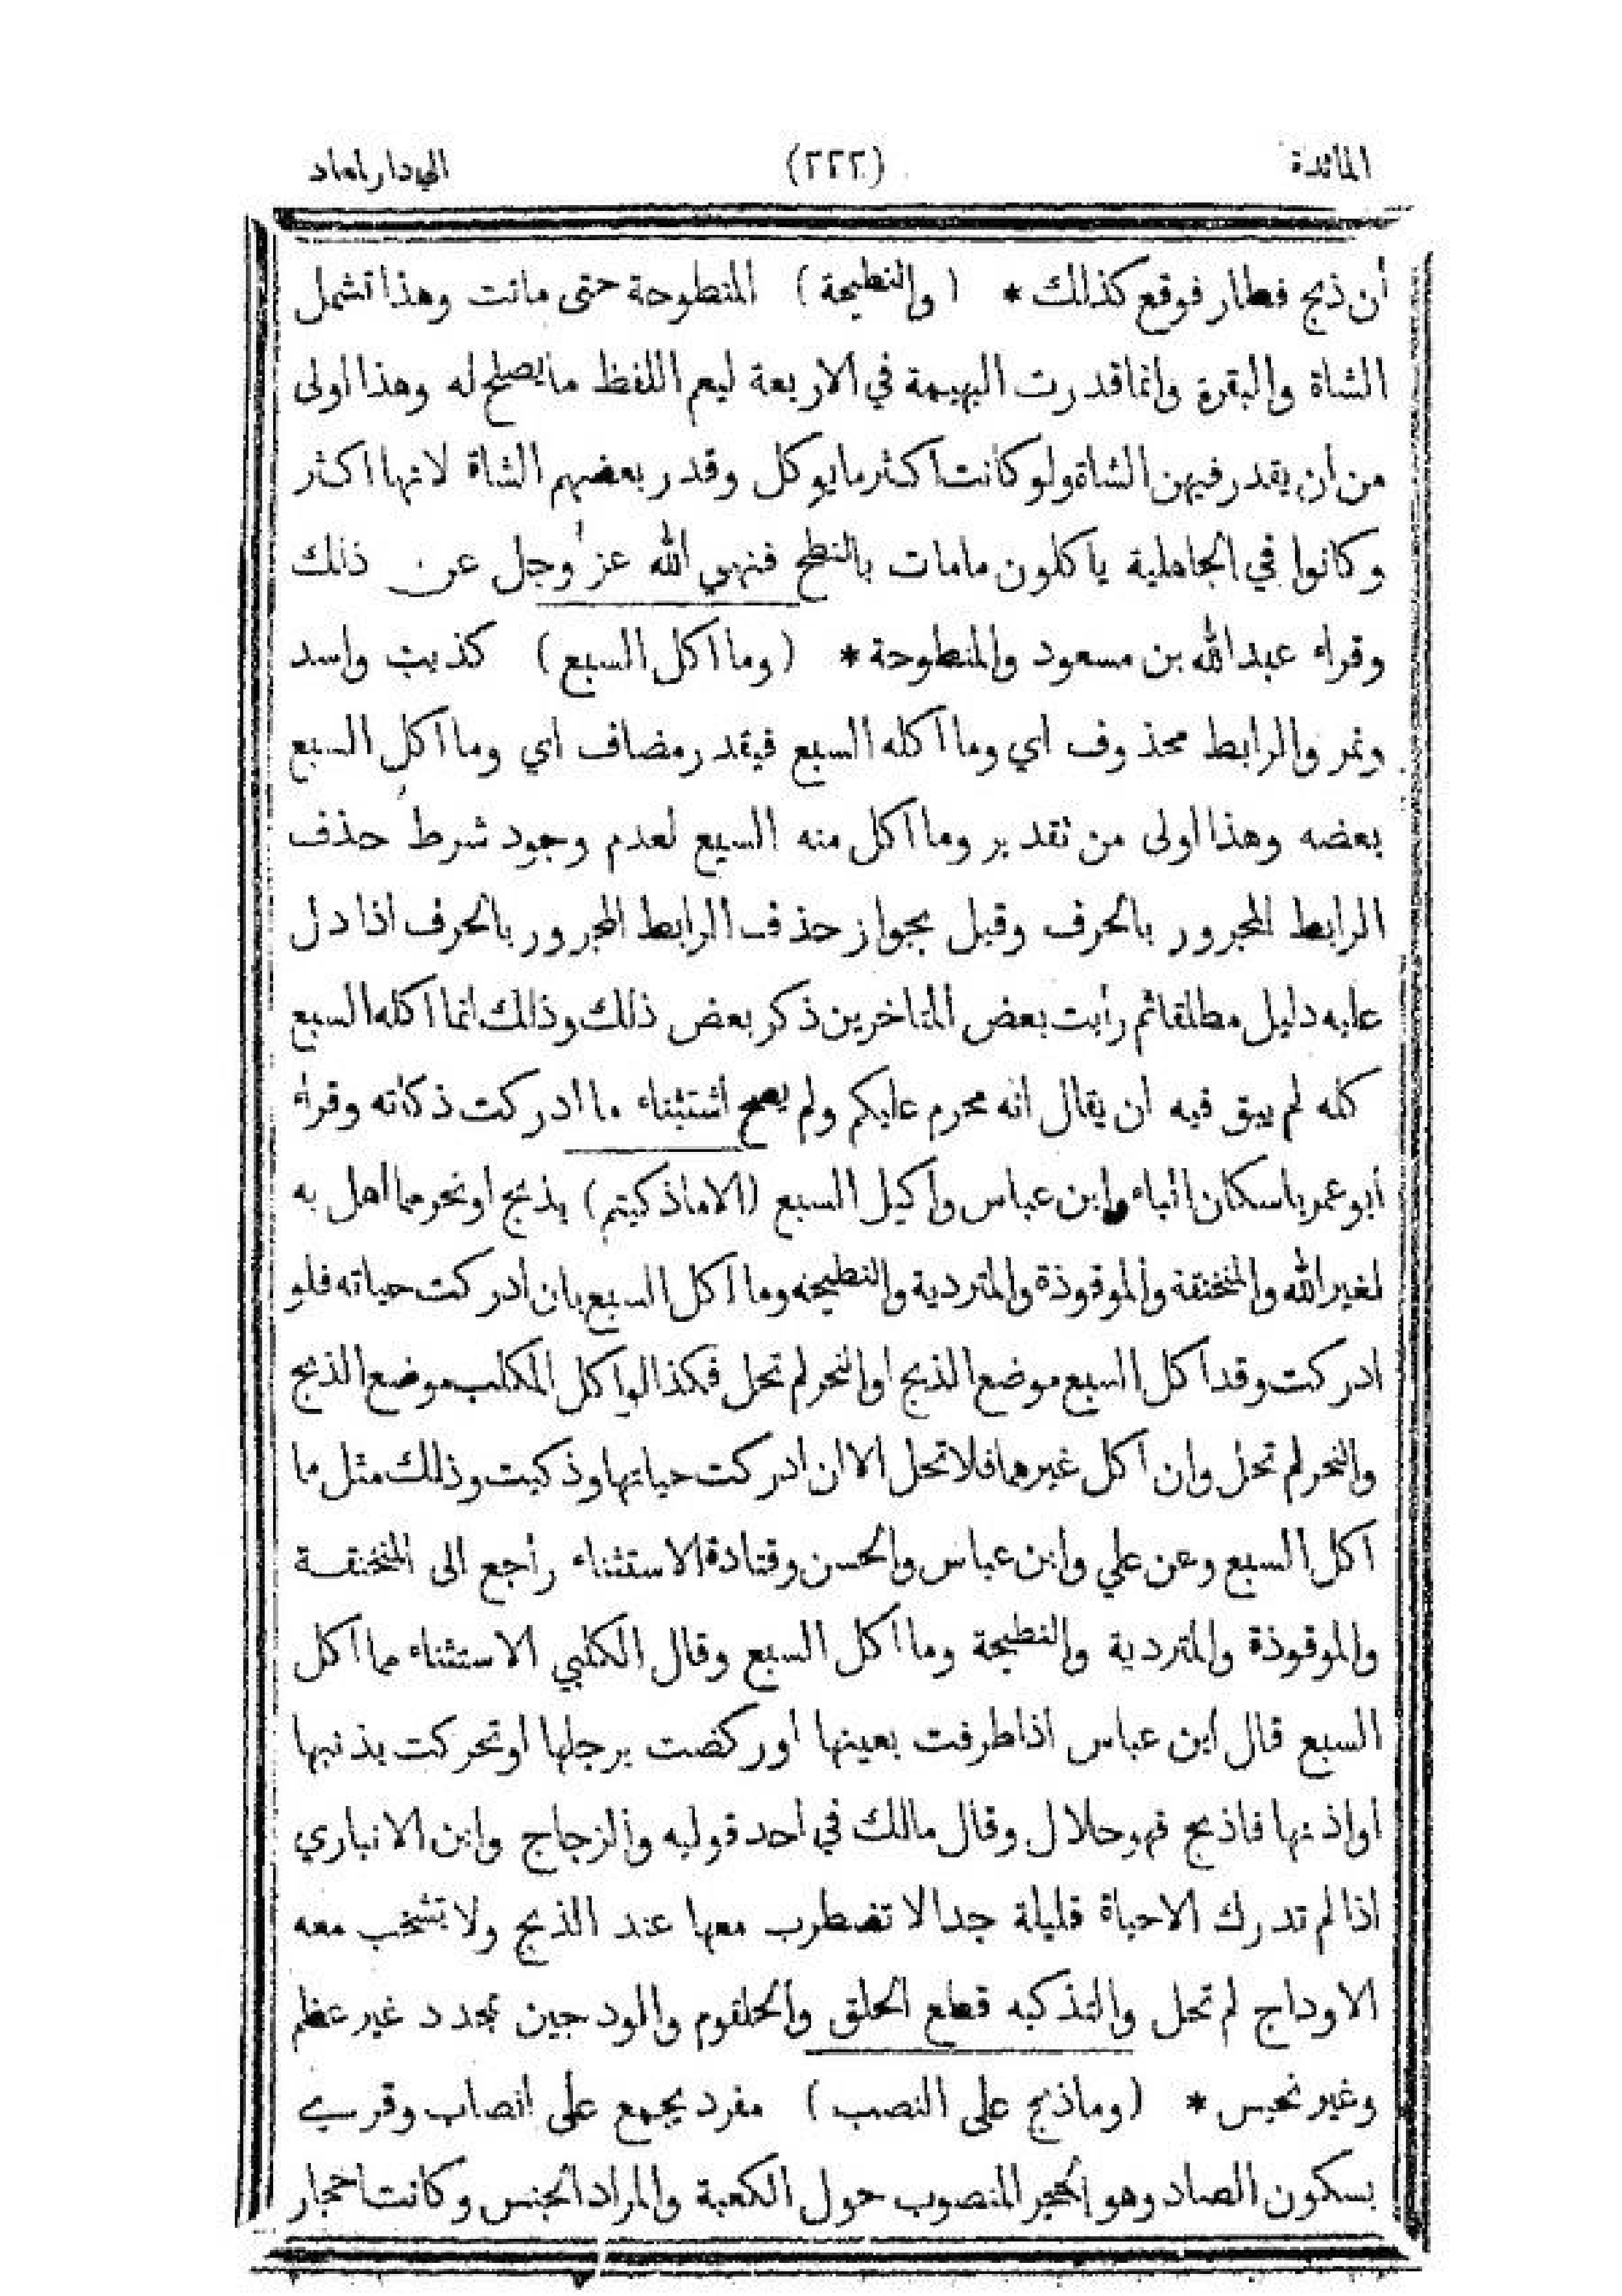 المائدة (٢٢٢) الى دار المعاد
أن ذبح فطار فوقع كذلك * (والنطيحة) المنطوحة حتى ماتت وهذا تشمل
الشاة والبقرة وانما قدرت البهيمة في الاربعة ليعم اللفظ ما يصلح له وهذا اولى
من ان يقدر فيهن الشاة ولو كانت اكثر ما يوكل وقدر بعضهم الشاة لانها اكثر
وكانوا في الجاهلية ياكلون ما مات بالنطح فنهى الله عز وجل عن ذلك
وقراء عبد الله بن مسعود والمنطوحة * (وما اكل السبع) كذيب واسد
ونمر والرابط محذوف اي وما اكله السبع فيقدر مضاف اي وما اكل السبع
بعضه وهذا اولى من تقدير وما اكل منه السبع لعدم وجود شرط حذف
الرابط المجرور بالحرف وقيل بجواز حذف الرابط المجرور بالحرف اذا دل
عليه دليل مطلقا ثم رأيت بعض المتاخرين ذكر بعض ذلك وذلك انما اكله السبع
كله لم يبق فيه ان يقال انه محرم عليكم ولم يصح استثناء ما ادركت ذكاته وقراء
أبو عمر باسكان الباء وابن عباس واكيل السبع (الا ما ذكيتم) بذبح او نحر مما اهل به
لغير الله والمنخنقة والموقوذة والمتردية والنطيحه وما اكل السبع بان ادركت حياته فلو
ادركت وقد اكل السبع موضع الذبح او النحر لم تحل فكذا لو اكل المكلب موضع الذبح
والنحر لم تحل وان اكل غيرهما فلا تحل الا ان ادركت حياتها وذكيت وذلك مثل ما
اكل السبع وعن علي وابن عباس والحسن وقتادة الاستثناء راجع الى المنخنقة
والموقوذة والمتردية والنطيحة وما اكل السبع وقال الكلبي الاستثناء مما اكل
السبع قال ابن عباس اذا طرفت بعينها او ركضت برجلها او تحركت بذنبها
او اذنها فاذبح فهو حلال وقال مالك في احد قوليه والزجاج وابن الانباري
اذا لم تدرك الا حياة قليلة جدا لا تضطرب معها عند الذبح ولا تشخب معه
الاوداج لم تحل والتذكيه قطع الحلق والحلقوم والودجين بمحدد غير عظم
وغير نجس * (وما ذبح على النصب) مفرد يجمع على انصاب وقرىء
بسكون الصاد وهو الحجر المنصوب حول الكعبة والمراد الجنس وكانت احجار